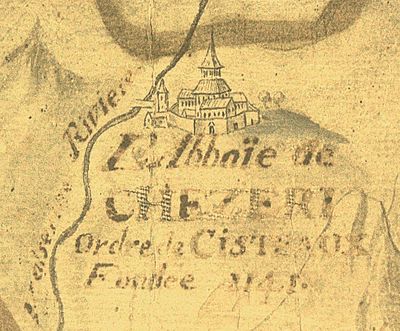 Riviere
L'Abbaïe de
CHEZERI
Ordre de CISTEAUX
Fondee 1141.